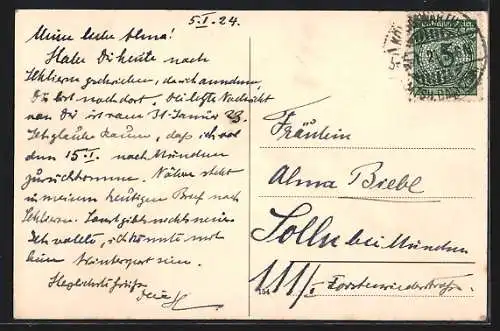 5.I.24.
Meine liebe Alma!
Habe Dir heute nach
Schliersee geschrieben, da ich annehme,
Du bist noch dort. Die letzte Nachricht
von Dir ist vom 31. Januar 23.
Ich glaube kaum, daß ich vor
dem 15.I. nach München
zurückkomme. Näheres steht
in meinem heutigen Brief nach
Schliersee. Sonst gibts nichts neues.
Ich wollte, ich könnte mit
beim Wintersport sein.
Herzlichste Grüße
Fräulein
Alma Biebl
Solln bei München
111/I Forstenriederstraße.
154
5